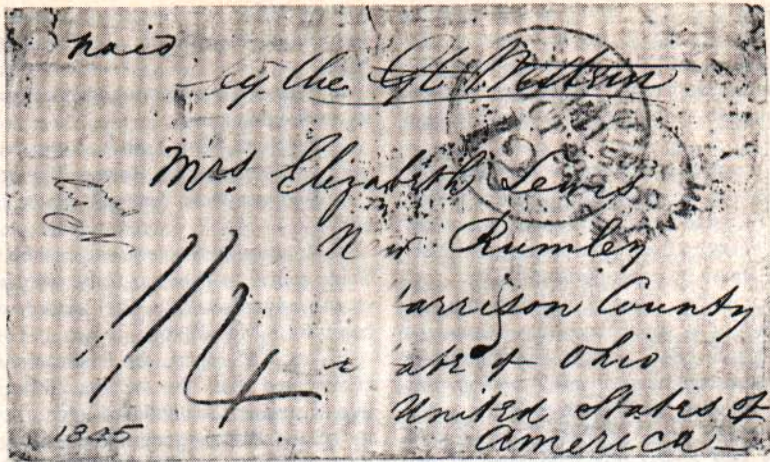 paid
the Gt Western
Mrs. Elizabeth Lewis
New Rumley
arrison County
ate of Ohio
United States of
America
1/4
1845
12